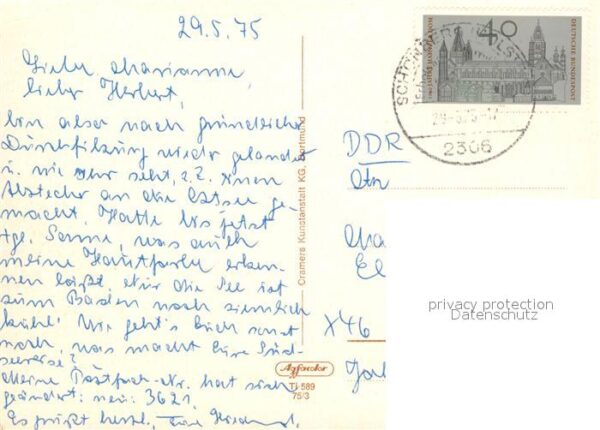 29.5.75
Liebe Marianne,
lieber Herbert,
bin also nach gründlicher
Durchfilzung wieder gelandet
u. wie Ihr seht, z.Z. einen
Abstecher an die Ostsee ge-
macht. Hatte bis jetzt
tgl. Sonne, was auch
meine Hautfarbe erken-
nen läßt. Nur die See ist
zum Baden noch ziemlich
kühl! Wie geht's Euch sonst
noch, was macht Eure
seereise?
Meine Postfach-Nr. hat sich
geändert: neu: 3621.
Es grüßt herzl.
Cramers Kunstanstalt KG, Dortmund
Agfacolor
Ti 589
75/3
40
DEUTSCHE BUNDESPOST
2306
DDR
X46
privacy protection
Datenschutz